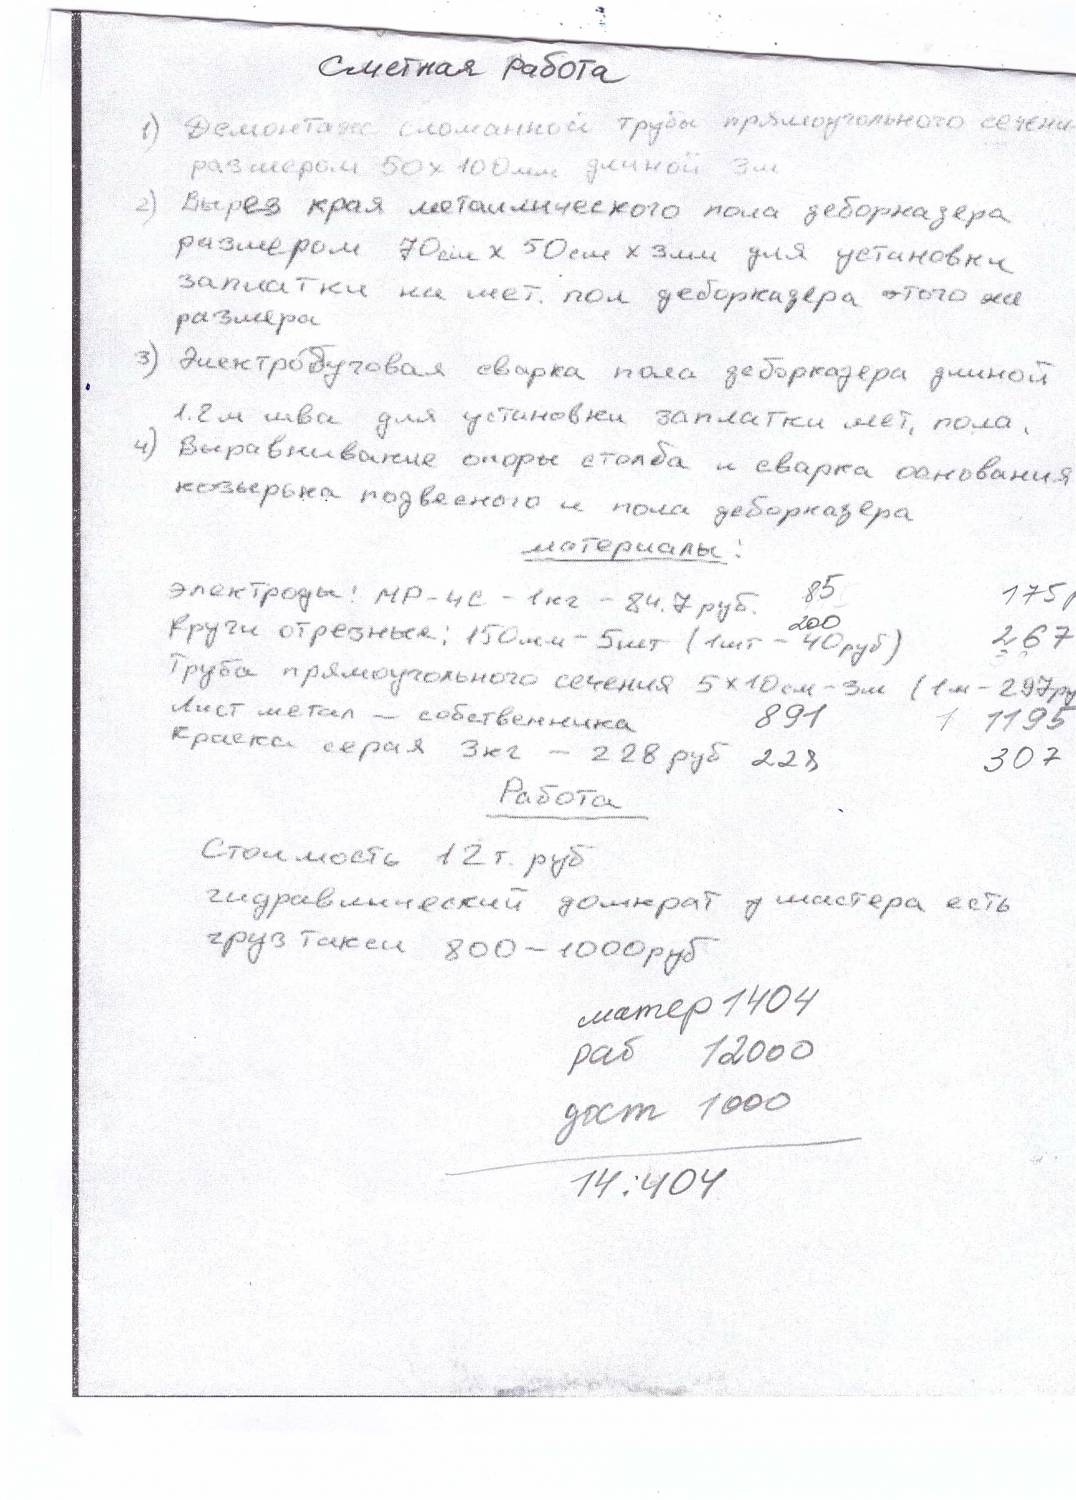 Сметная работа
1) Демонтаж сломанной трубы прямоугольного сечени
размером 50х100мм длиной 3м
2) Вырез края металлического пола дебаркадера
размером 70см х 50см х 3мм для установки
заплатки на мет. пол дебаркадера этого же
размера
3) Электродуговая сварка пола дебаркадера длиной
1.2м шва для установки заплатки мет. пола.
4) Выравнивание опоры столба и сварка основания
козырька подвесного и пола дебаркадера
материалы:
Электроды: МР-4С - 1кг - 84.7руб. 85 175р
Круги отрезные: 150мм - 5шт (1шт - 40руб) 200 267
Труба прямоугольного сечения 5х10см - 3м (1м - 297ру
Лист метал - собственника 891 1195
Краска серая 3кг - 228руб 228 307
Работа
Стоимость 12т. руб
гидравлический домкрат у мастера есть
груз такси 800-1000руб
матер 1404
раб 12000
дост 1000
14:404